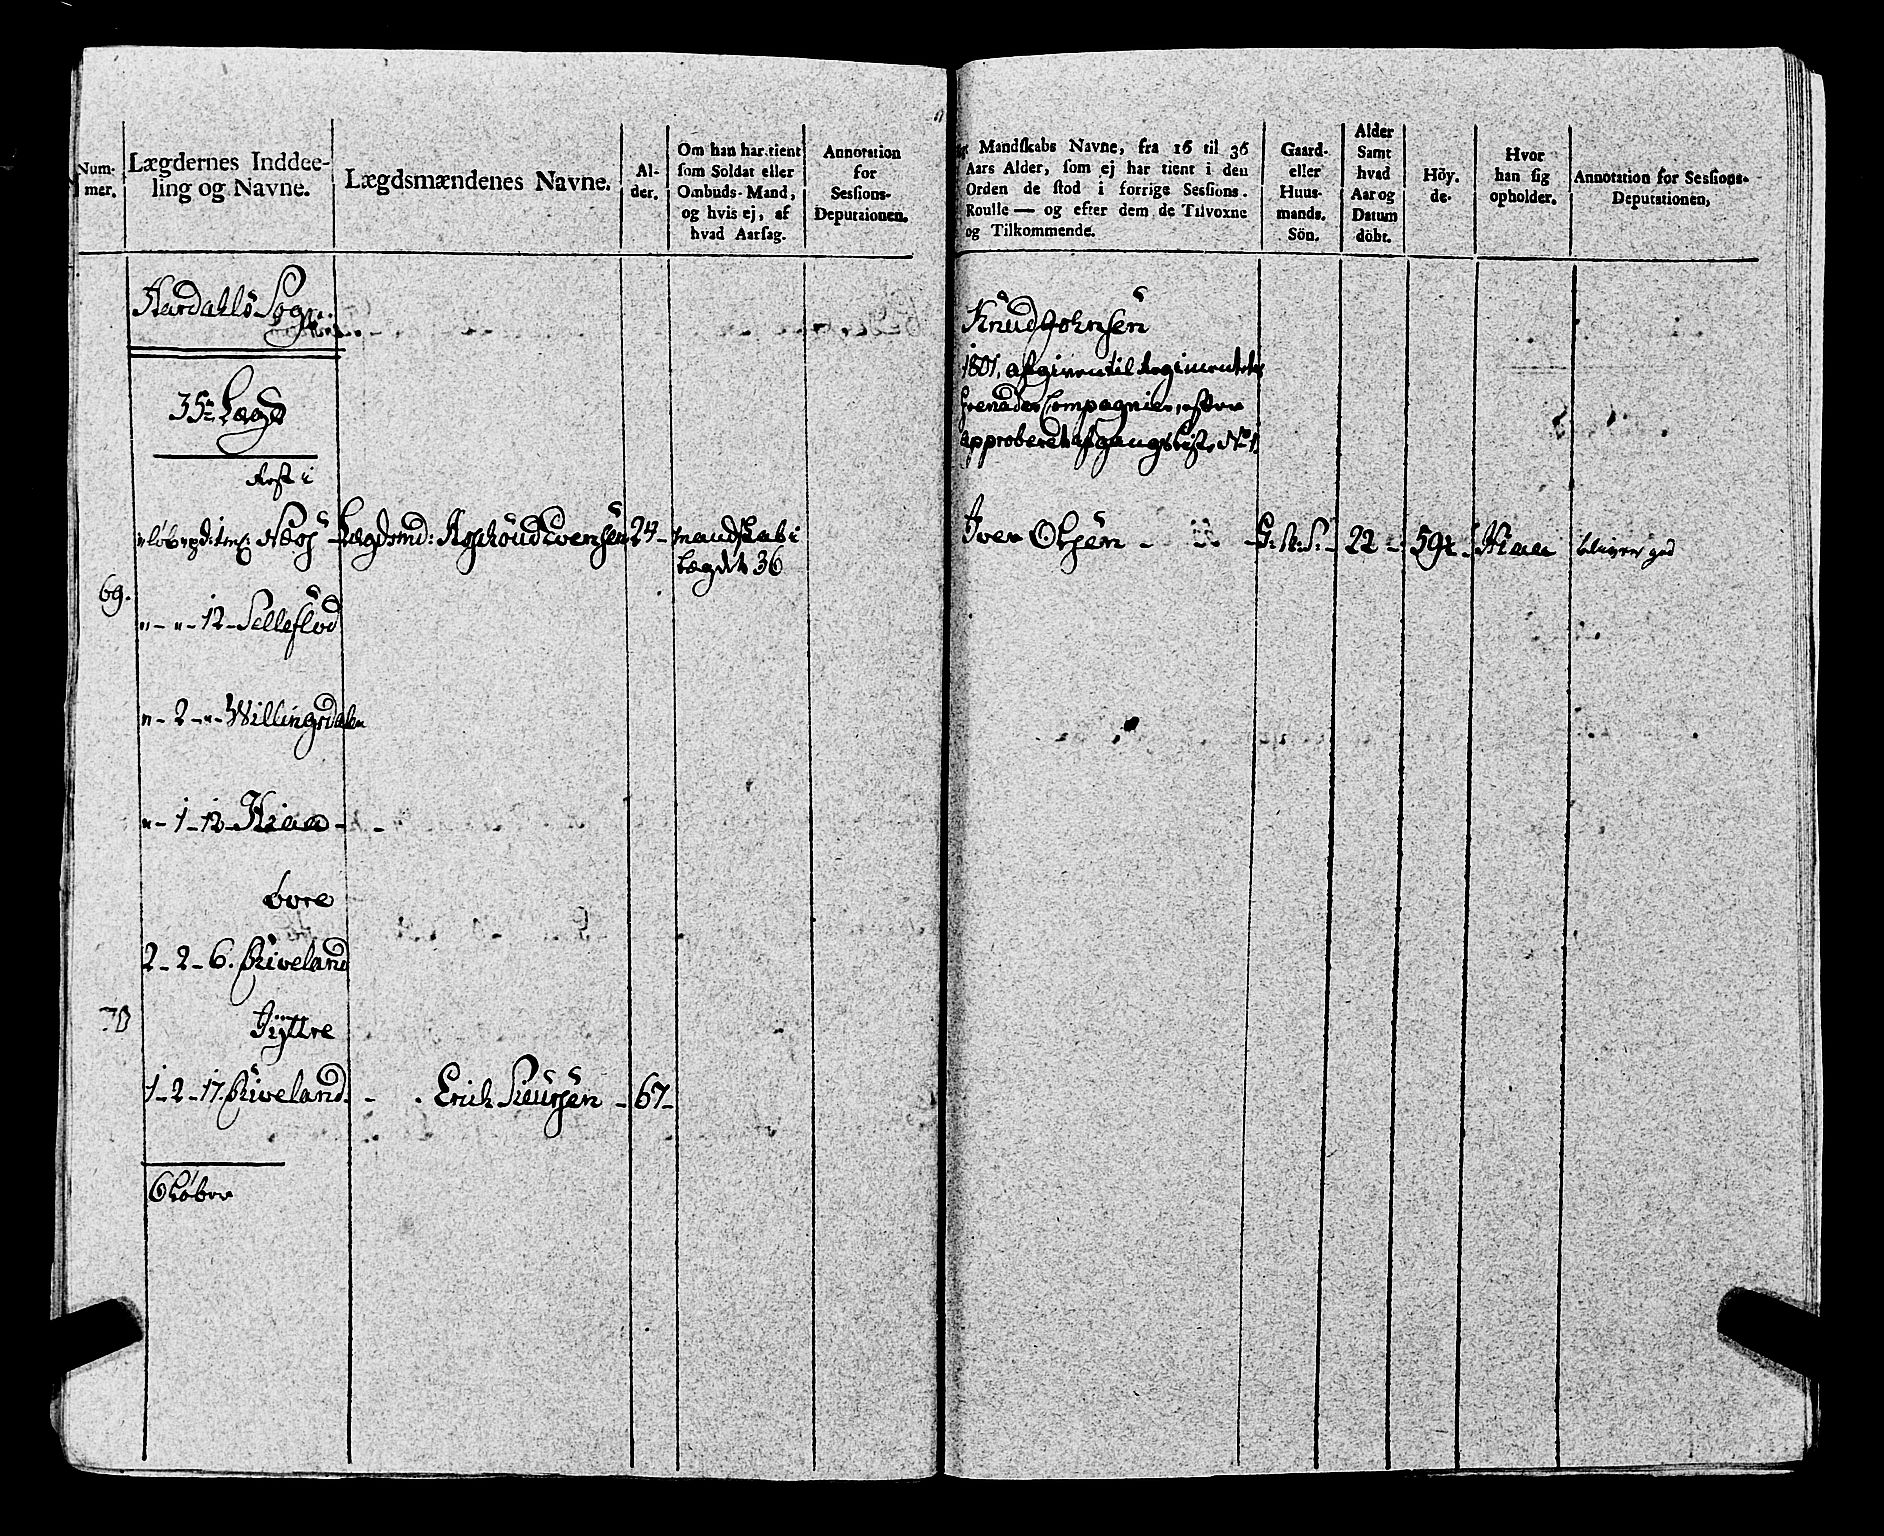 Num-
mer.
Lægdernes Inddee-
ling og Navne.
Lægdsmændenes Navne.
Al-
der.
Om han har tient
som Soldat eller
Ombuds-Mand,
og hvis ej, af
hvad Aarsag.
Annotation
for
Sessions-
Deputationen.
Hardahls Sogn
35te Lægd
Rest i
Næs - Lægdsmd: Aschoud Evensen 24 - mandskab i
Lægdet 36
69.
" - " - 12 - Selleflod
" - 2 - " - Willingsdalen
" - 1 - 12 - Kiaa -
övre
2 - 2 - 6. Qviveland
70
Jÿttre
1 - 2 - 17. Qviveland. - - Erich Siursen - 67 -
6 Løber
Mandskabs Navne, fra 16 til 36
Aars Alder, som ej har tient i den
Orden de stod i forrige Sessions-
Roulle — og efter dem de Tilvoxne
og Tilkommende.
Gaard-
eller
Huus-
mands-
Sön.
Alder
Samt
hvad
Aar og
Datum
döbt.
Höy-
de.
Hvor
han sig
opholder.
Annotation for Sessions-
Deputationen,
Knud Johnsen
1801, afgiven til Regimentets
Grenadeer Compagnier, efter
approberet afgangs Liste No 1.
Iver Olsen - G: M: S: - 22 - 59¼ - Kiaa bliver god